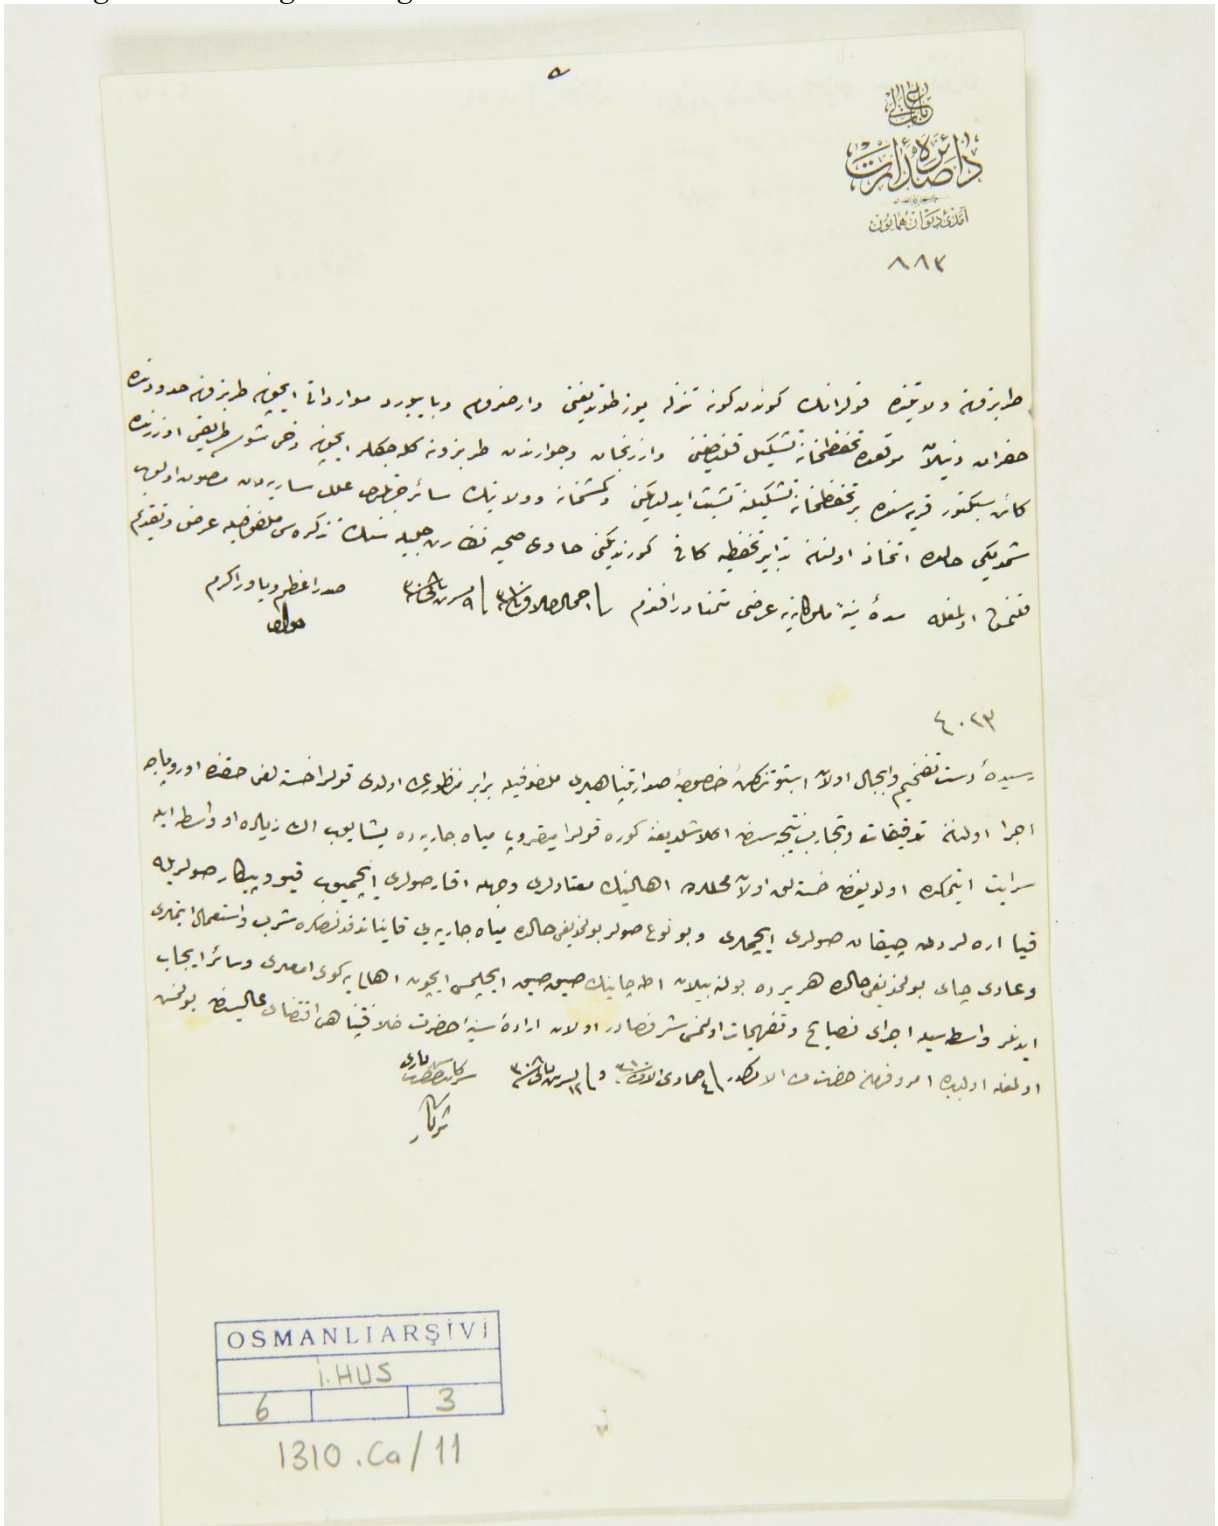 باب عالی
دائرهٔ صدارت
آمدئ دیوان همایون
٨٨٣
طربزون ولایتنده قولرانك كوندن كونه تنزله یوز طوتدیغنی وارضروم وبایبورد مواردات ایچون طربزون حدودنده
موقعده تحفظخانه تشكیل قلندیغنی وارزنجان وجوارندن طربزونه كله جكلر ایچون دخی شوسه طریقی اوزرنده
كائن قریه سنده بر تحفظخانه تشكیلنه تشبث ایدلدیكنی وكمشخانه وولایتك سائر علل ساریه دن مصون اولوب
شمدیكی حالده اتخاذ اولنان تدابیر تحفظیه كافی كورندیكنی حاوی صحیه نظارت جلیله سنك تذكره سی ملفوفیله عرض وتقدیم
قلنمش اولمغله سدهٔ سنیهٔ ملوكانه یه عرضی متمنادر افندم
صدر اعظم ویاور اكرم
جواد
٤٠٢٣
رسیدهٔ دست تفخیم وابجال اولان اشبو تذكرهٔ خصوصیهٔ صدارتپناهیلری ملفوفیله برابر منظور عالی اولدی قولرا خسته لغی حقنده اوروپاجه
اجرا اولنان تدقیقات وتجارب نتیجه سنده اكلاشلدیغنه كوره قولرا میقروبی میاه جاریه ده یشایوب اك زیاده او واسطه ایله
سرایت ایتمكده اولدیغندن خسته لق اولان محللرده اهالینك معتادلری وجهله اقار صولری ایچمیوب قیو وپیكار صولریله
قیا اره لرندن چیقان صولری ایچملری وبو نوع صولر بولنمدیغی حالده میاه جاریه یی قایناتدقدنصكره شرب واستعمال ایتملری
وعادی چای بولنمدیغی حالده هر یرده بولنه بیلان اطه چاینك صیق صیق ایچلمسی ایچون اهالی یه كوی اماملری وسائر ایجاب
ایدنلر واسطه سیله اجرای نصایح وتفهیمات اولنمسی شرفصادر اولان ارادهٔ سنیهٔ حضرت خلافتپناهی اقتضای عالیسندن بولنمش
اولمغله اولبابده امر وفرمان حضرت من له الامركدر
سركاتب حضرت شهریاری
ثریا
OSMANLI ARŞİVİ
İ.HUS
6 3
1310.Ca/11